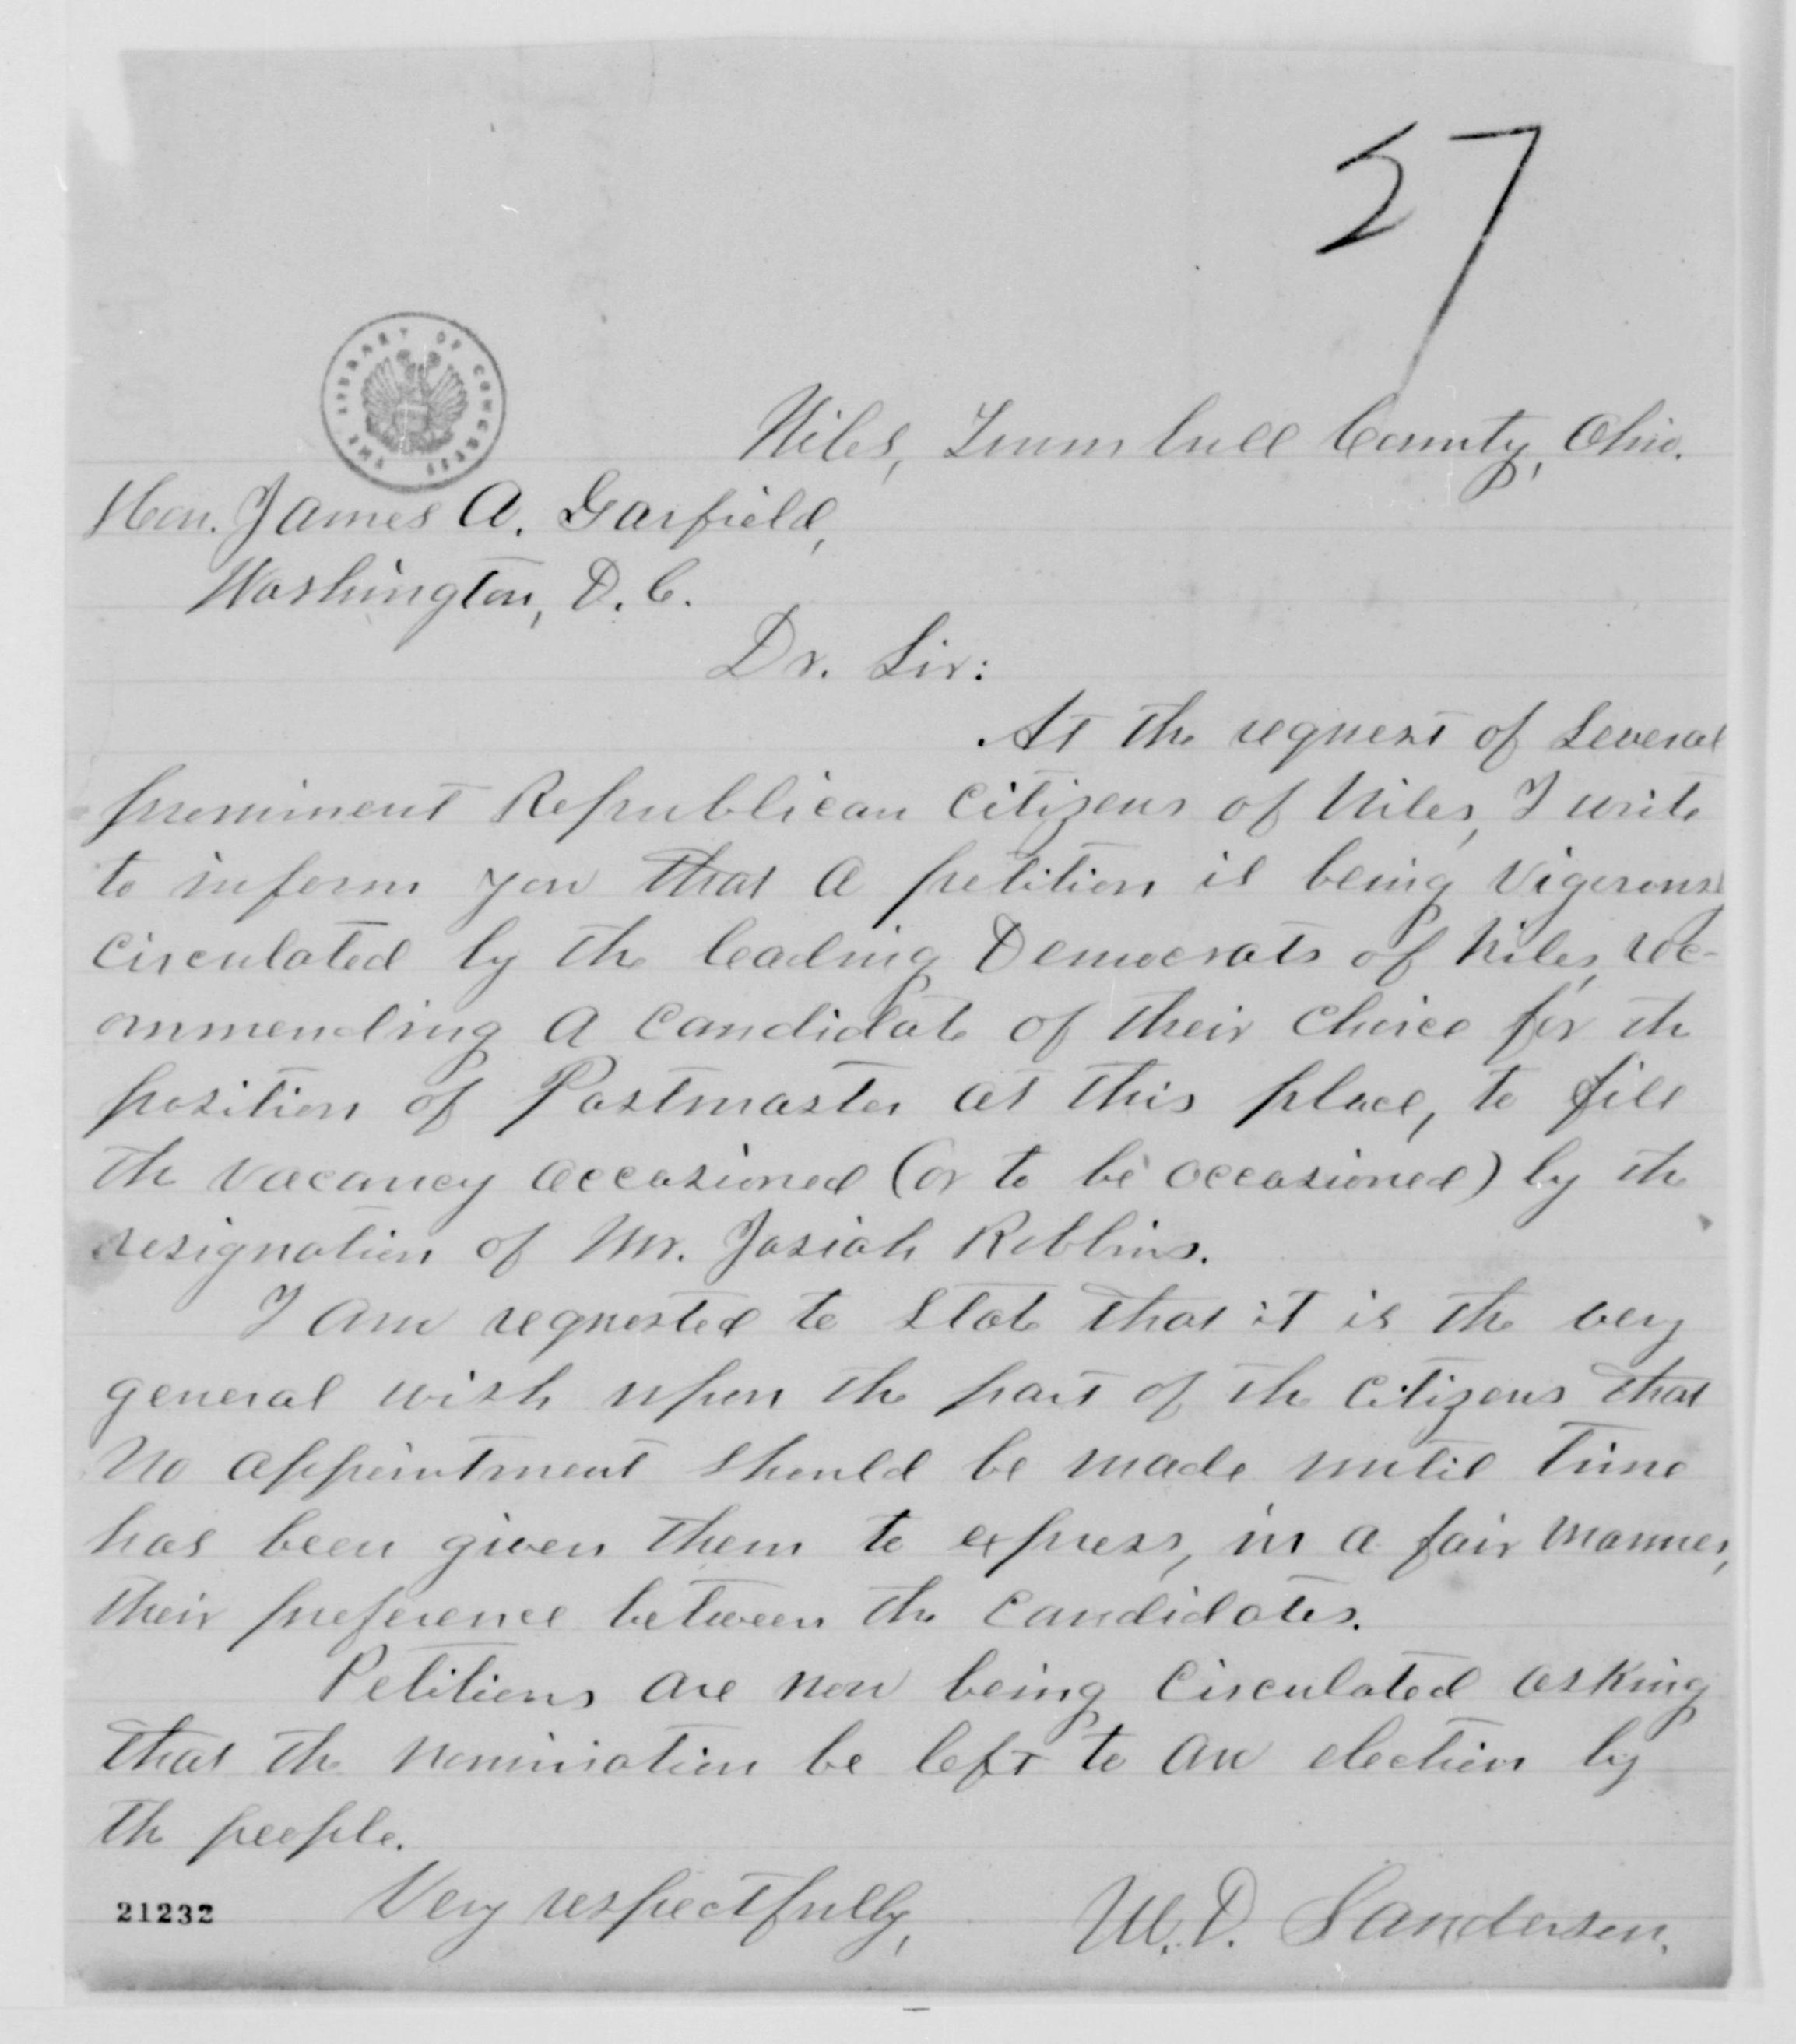 27
THE LIBRARY OF CONGRESS
Niles, Trumbull County, Ohio.
Hon. James A. Garfield,
Washington, D. C.
Dr. Sir:
At the request of several
prominent Republican citizens of Niles, I write
to inform you that a petition is being vigorously
circulated by the leading Democrats of Niles, rec-
ommending a candidate of their choice for the
position of Postmaster at this place, to fill
the vacancy occasioned (or to be occasioned) by the
resignation of Mr. Josiah Robbins.
I am requested to state that it is the very
general wish upon the part of the citizens that
no appointment should be made until time
has been given them to express, in a fair manner,
their preference between the candidates.
Petitions are now being circulated asking
that the nomination be left to an election by
the people.
Very respectfully,
W. D. Sanderson.
21232